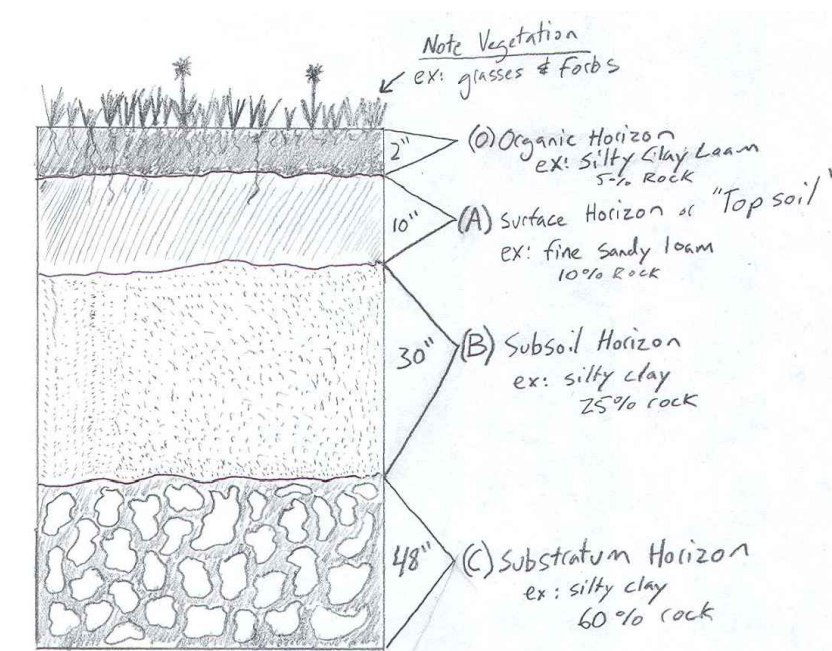 Note Vegetation
ex: grasses & forbs
2"
(O) Organic Horizon
ex: Silty Clay Loam
5% Rock
10"
(A) Surface Horizon or "Top soil"
ex: fine sandy loam
10% Rock
30"
(B) Subsoil Horizon
ex: silty clay
25% rock
48"
(C) Substratum Horizon
ex: silty clay
60% rock